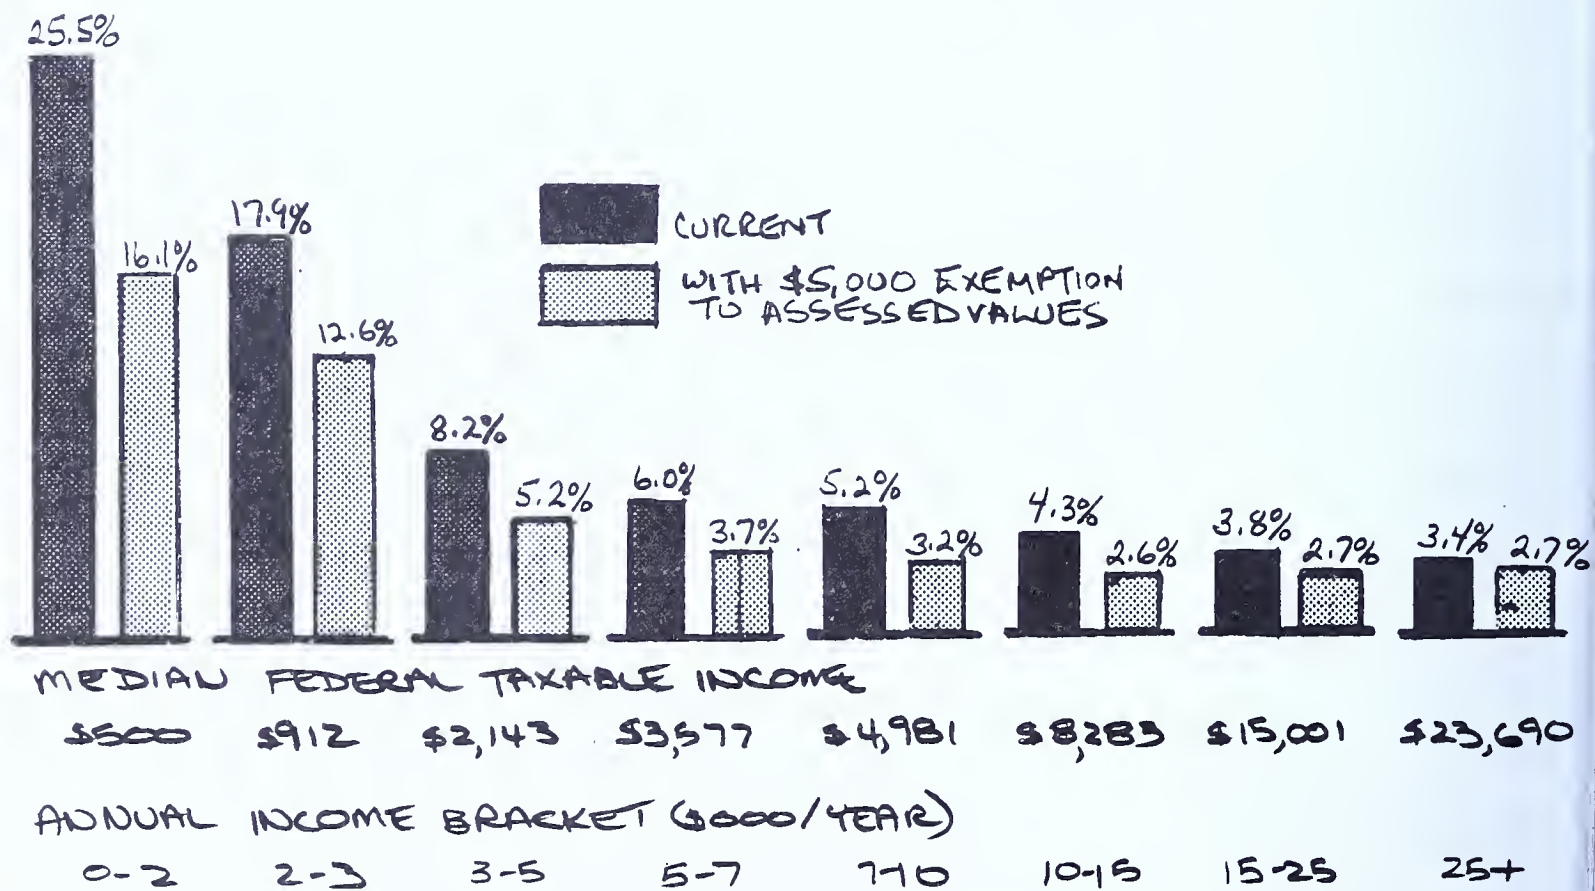 25.5%
16.1%
17.9%
12.6%
8.2%
5.2%
6.0%
3.7%
5.2%
3.2%
4.3%
2.6%
3.8%
2.7%
3.4%
2.7%
CURRENT
WITH $5,000 EXEMPTION
TO ASSESSED VALUES
MEDIAN FEDERAL TAXABLE INCOME
$500 $912 $2,143 $3,577 $4,981 $8,283 $15,001 $23,690
ANNUAL INCOME BRACKET ($000/YEAR)
0-2 2-3 3-5 5-7 7-10 10-15 15-25 25+